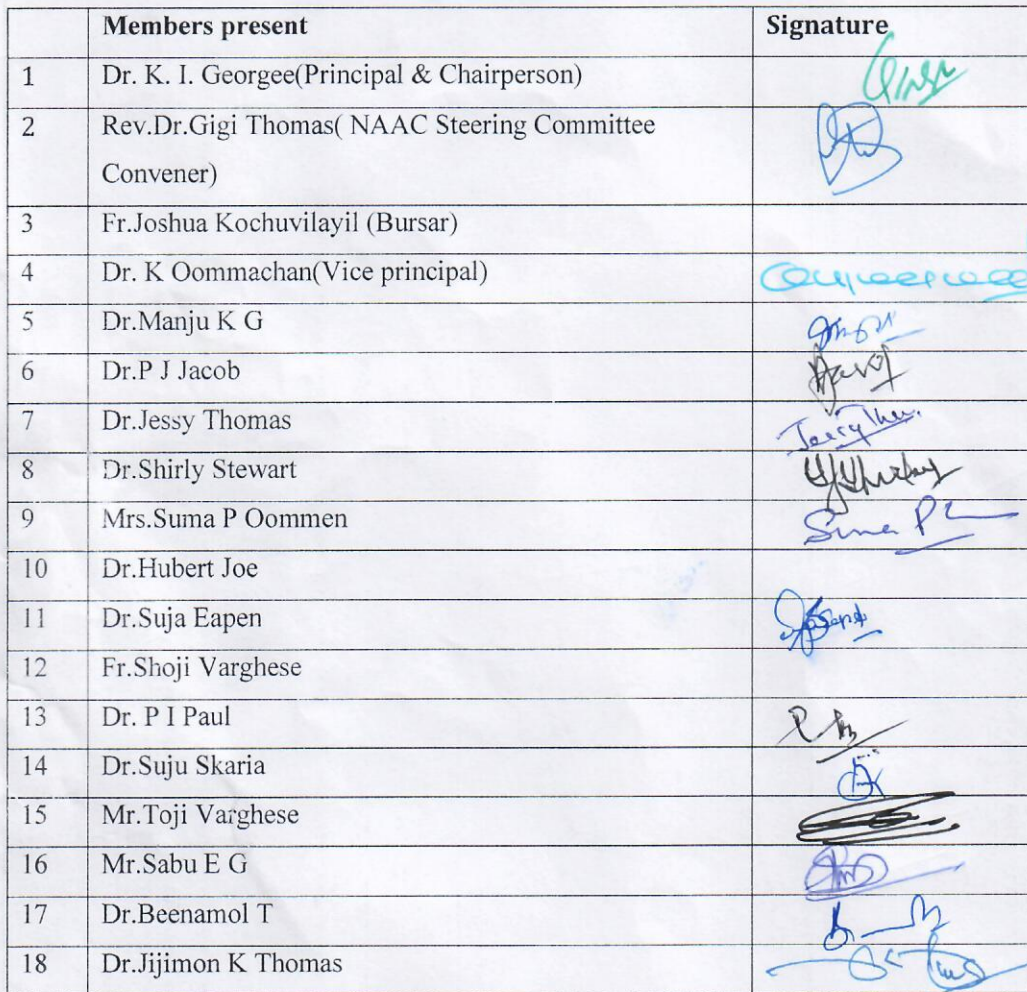 Members present Signature
1 Dr. K. I. Georgee(Principal & Chairperson)
2 Rev.Dr.Gigi Thomas( NAAC Steering Committee
Convener)
3 Fr.Joshua Kochuvilayil (Bursar)
4 Dr. K Oommachan(Vice principal)
5 Dr.Manju K G
6 Dr.P J Jacob
7 Dr.Jessy Thomas
8 Dr.Shirly Stewart
9 Mrs.Suma P Oommen Suma P
10 Dr.Hubert Joe
11 Dr.Suja Eapen
12 Fr.Shoji Varghese
13 Dr. P I Paul
14 Dr.Suju Skaria
15 Mr.Toji Varghese
16 Mr.Sabu E G
17 Dr.Beenamol T
18 Dr.Jijimon K Thomas